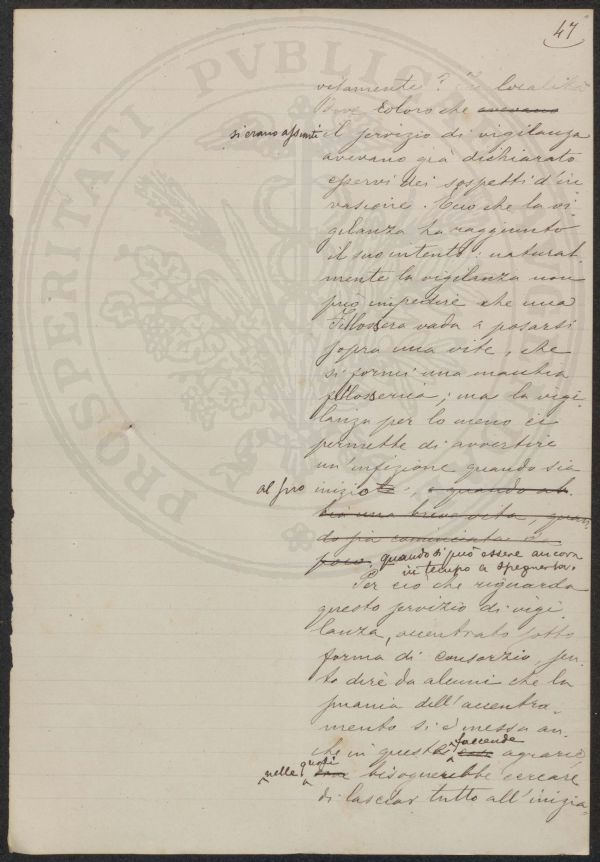 47
vitamente? In località
dove coloro che avevano
si erano assunti il servizio di vigilanza
avevano già dichiarato
esservi dei sospetti d'in
vasione. Ecco che la vi
gilanza ha raggiunto
il suo intento: natural
mente la vigilanza non
può impedire che una
Fillossera vada a posarsi
sopra una vite, che
si formi una macchia
fillosserica; ma la vigi
lanza per lo meno ci
permette di avvertire
un'infezione quando sia
al suo inizio, e quando ab
bia una breve vita, quan
do sia cominciata da
poco, quando si può essere ancora
in tempo a spegnerla.
Per ciò che riguarda
questo servizio di vigi
lanza, accentrato sotto
forma di consorzio, sen
to dire da alcuni che la
smania dell'accentra-
mento si è messa an-
che in queste cose faccende agrarie,
nelle quali bisognerebbe cercare
di lasciar tutto all'inizia-
PROSPERITATI PVBLICAE